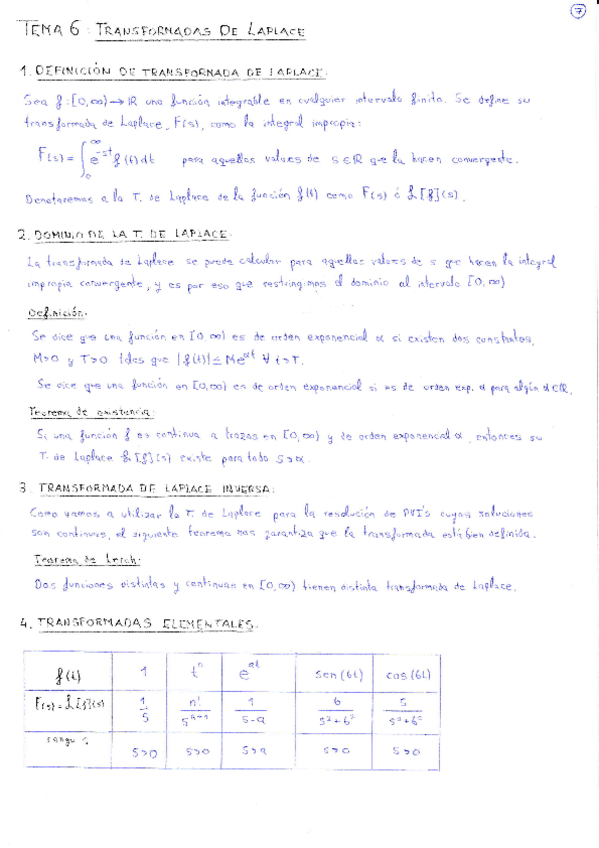 7
TEMA 6: TRANSFORMADAS DE LAPLACE
1. DEFINICIÓN DE TRANSFORMADA DE LAPLACE:
Sea f:[0,∞)→IR una función integrable en cualquier intervalo finito. Se define su
transformada de Laplace, F(s), como la integral impropia:
F(s) = ∫₀^∞ e^-st f(t) dt para aquellos valores de s∈IR que la hacen convergente.
Denotaremos a la T. de Laplace de la función f(t) como F(s) ó L[f](s).
2. DOMINIO DE LA T. DE LAPLACE.
La transformada de Laplace se puede calcular para aquellos valores de s que hacen la integral
impropia convergente, y es por eso que restringimos el dominio al intervalo [0,∞)
Definición.
Se dice que una función en [0,∞) es de orden exponencial α si existen dos constantes,
M>0 y T>0 tales que |f(t)| ≤ Me^αt ∀ t>T.
Se dice que una función en [0,∞) es de orden exponencial si es de orden exp. α para algún α∈IR.
Teorema de existencia:
Si una función f es continua a trozos en [0,∞) y de orden exponencial α, entonces su
T. de Laplace L[f](s) existe para todo s>α.
3. TRANSFORMADA DE LAPLACE INVERSA:
Como vamos a utilizar la T. de Laplace para la resolución de PVI's cuyas soluciones
son continuas, el siguiente teorema nos garantiza que la transformada está bien definida.
Teorema de Lerch:
Dos funciones distintas y continuas en [0,∞) tienen distinta transformada de Laplace.
4. TRANSFORMADAS ELEMENTALES.
f(t) 1 t^n e^at sen(bt) cos(bt)
F(s)=L[f](s) 1/s n!/s^n+1 1/s-a b/s²+b² s/s²+b²
rango s s>0 s>0 s>a s>0 s>0